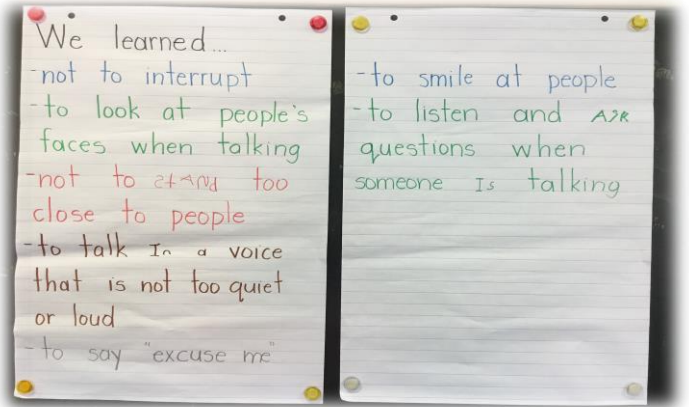 We learned...
-not to interrupt
-to look at people's
faces when talking
-not to stand too
close to people
-to talk In a voice
that is not too quiet
or loud
-to say "excuse me"
-to smile at people
-to listen and ask
questions when
someone Is talking